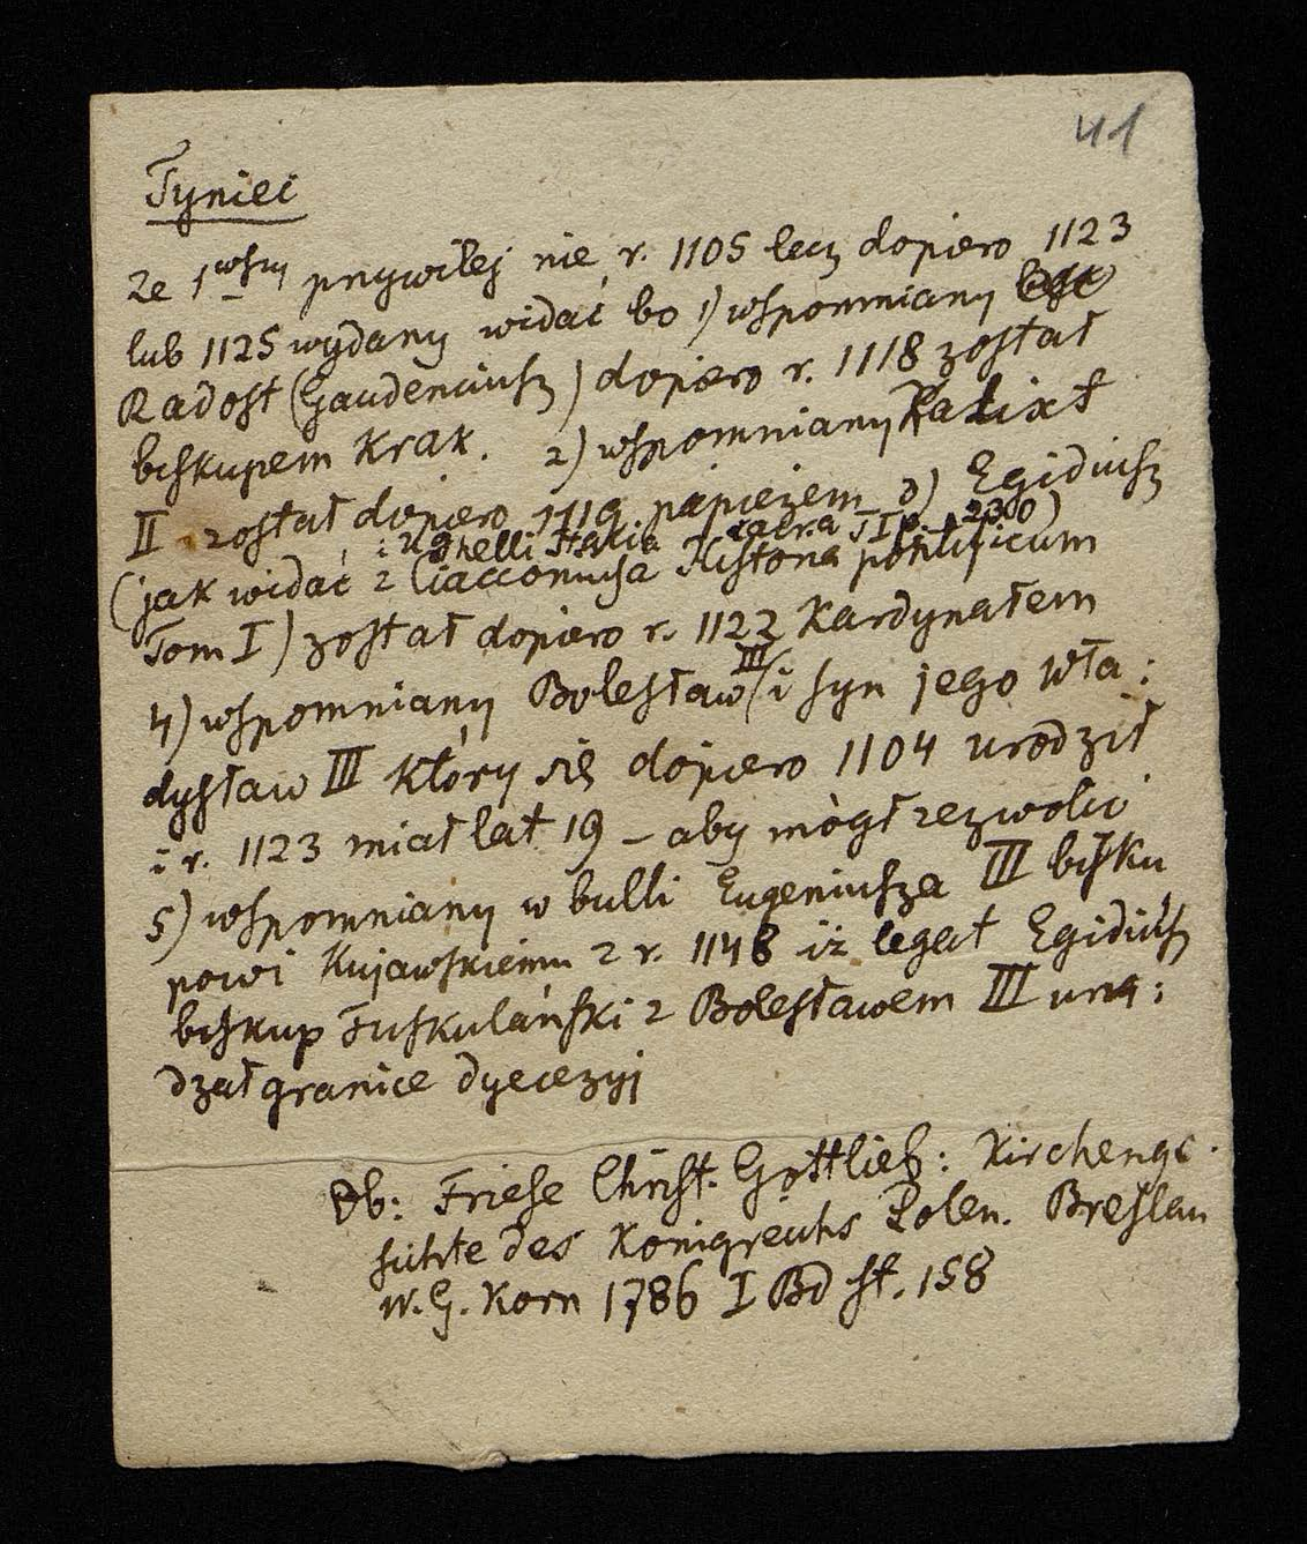 41
Tyniec
Ze 1wszy przywilej nie r. 1105 lecz dopiero 1123
lub 1125 wydany widać bo 1) wspomniany
Radost (Gaudenciusz) dopiero r. 1118 został
biskupem Krak. 2) wspomniany Kalixt
II został dopiero 1119 papieżem 3) Egidiusz
i Ughelli Italia sacra T I p. 230)
(jak widać z Ciacconiusa Historia pontificum
Tom I) został dopiero r. 1122 Kardynałem
4) wspomniany Bolesław III (i syn jego Wła:
dysław III który się dopiero 1104 urodził
i r. 1123 miał lat 19 – aby mògł zezwolić
5) wspomniany w bulli Eugeniusza III bisku
powi Kujawskiemu z r. 1148 iż legat Egidiusz
biskup Tuskulański z Bolesławem III urzą:
dzał granice dyecezyj
Ob: Friese Christ. Gottlieb: Kirchenge.
sichte des Konigreichs Polen. Breslau
W. G. Korn 1786 I Bd st. 158